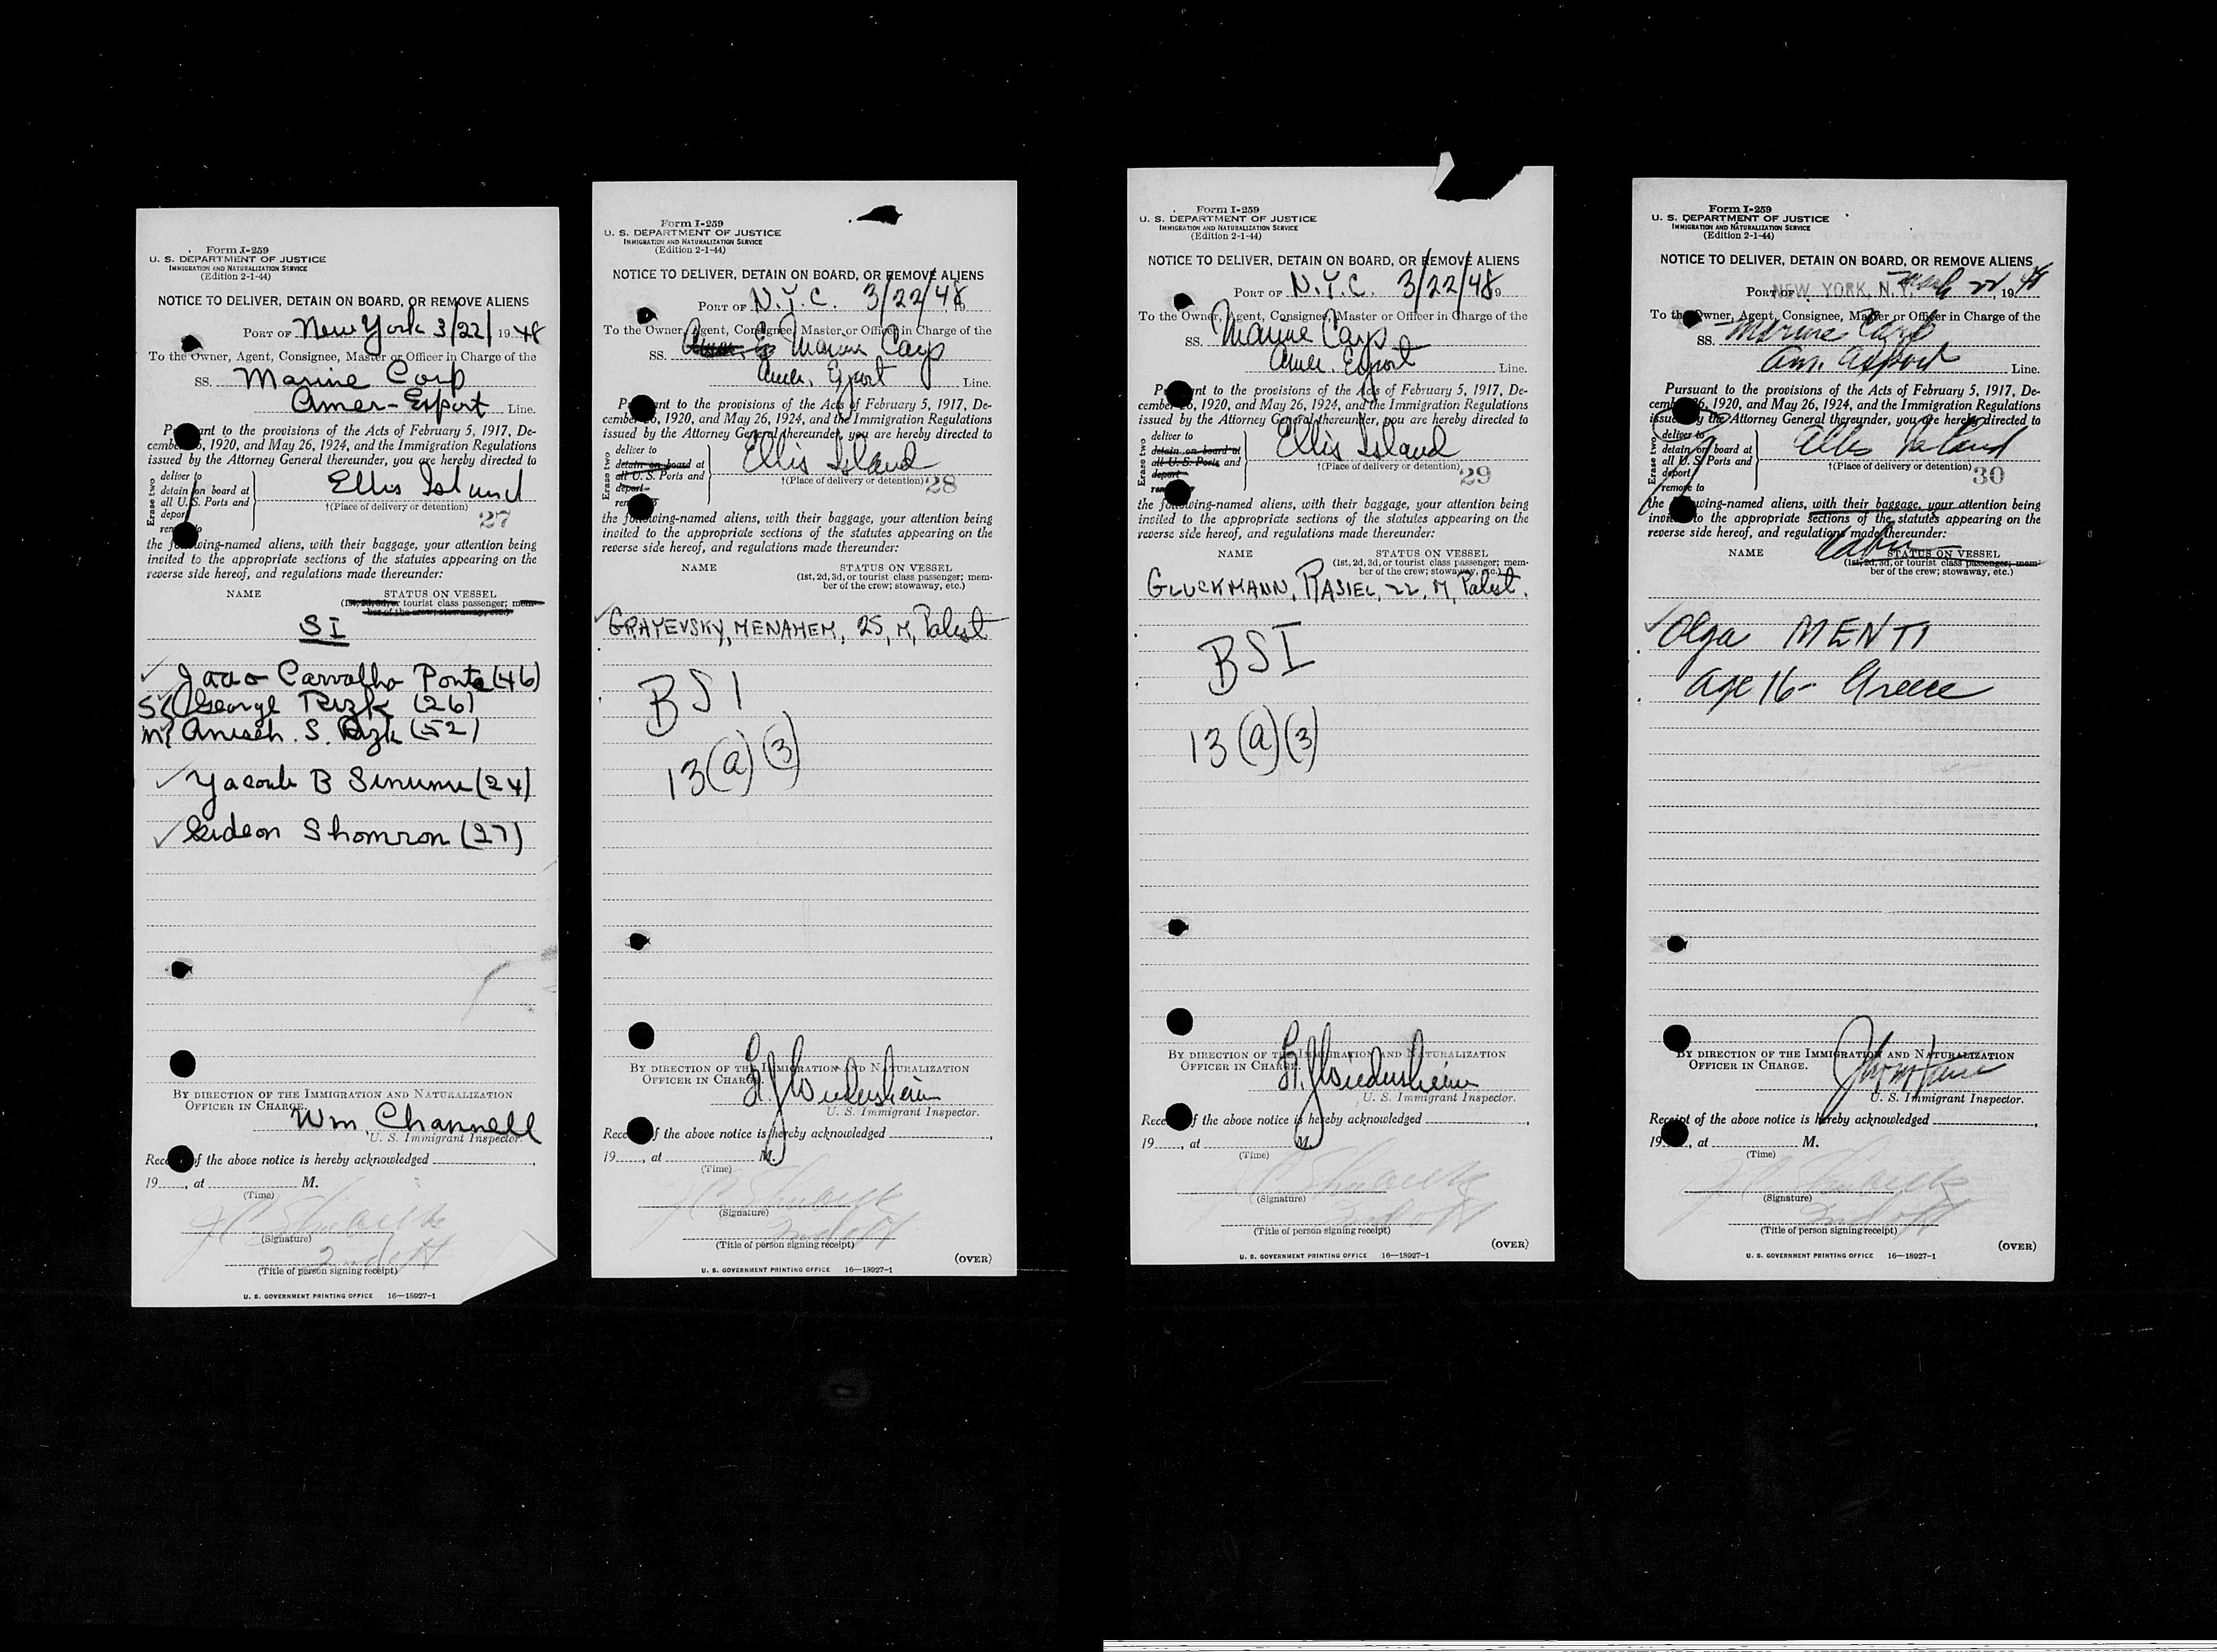 Form I-259
U. S. DEPARTMENT OF JUSTICE
IMMIGRATION AND NATURALIZATION SERVICE
(Edition 2-1-44)
NOTICE TO DELIVER, DETAIN ON BOARD, OR REMOVE ALIENS
PORT OF New York 3/22/1948
To the Owner, Agent, Consignee, Master or Officer in Charge of the
SS. Marine Carp
Amer-Export Line.
Pursuant to the provisions of the Acts of February 5, 1917, De-
cember 26, 1920, and May 26, 1924, and the Immigration Regulations
issued by the Attorney General thereunder, you are hereby directed to
Erase two
deliver to
detain on board at
all U. S. Ports and
deport
remove to
Ellis Island
†(Place of delivery or detention)
27
the following-named aliens, with their baggage, your attention being
invited to the appropriate sections of the statutes appearing on the
reverse side hereof, and regulations made thereunder:
NAME STATUS ON VESSEL
(1st, 2d, 3d, or tourist class passenger; mem-
ber of the crew; stowaway, etc.)
SI
Joao Carvalho Ponte (46)
George Rizk (26)
Aniseh. S. Rizk (52)
Yacoub B Sinunu (24)
Gideon Shomron (27)
BY DIRECTION OF THE IMMIGRATION AND NATURALIZATION
OFFICER IN CHARGE.
Wm. Channell
U. S. Immigrant Inspector.
Receipt of the above notice is hereby acknowledged
19 , at M.
(Time)
(Signature)
2nd off
(Title of person signing receipt)
U. S. GOVERNMENT PRINTING OFFICE 16—18927-1
Form I-259
U. S. DEPARTMENT OF JUSTICE
IMMIGRATION AND NATURALIZATION SERVICE
(Edition 2-1-44)
NOTICE TO DELIVER, DETAIN ON BOARD, OR REMOVE ALIENS
PORT OF N.Y.C. 3/22/48 19
To the Owner, Agent, Consignee, Master or Officer in Charge of the
SS. Marine Carp
Amer. Export Line.
Pursuant to the provisions of the Acts of February 5, 1917, De-
cember 26, 1920, and May 26, 1924, and the Immigration Regulations
issued by the Attorney General thereunder, you are hereby directed to
Erase two
deliver to
detain on board at
all U. S. Ports and
deport
remove to
Ellis Island
†(Place of delivery or detention)
28
the following-named aliens, with their baggage, your attention being
invited to the appropriate sections of the statutes appearing on the
reverse side hereof, and regulations made thereunder:
NAME STATUS ON VESSEL
(1st, 2d, 3d, or tourist class passenger; mem-
ber of the crew; stowaway, etc.)
GRAYEVSKY, MENAHEM, 25, M, Palest
BSI
13(a)(3)
BY DIRECTION OF THE IMMIGRATION AND NATURALIZATION
OFFICER IN CHARGE.
U. S. Immigrant Inspector.
Receipt of the above notice is hereby acknowledged
19 , at M.
(Time)
(Signature)
2nd off
(Title of person signing receipt)
(OVER)
U. S. GOVERNMENT PRINTING OFFICE 16—18927-1
Form I-259
U. S. DEPARTMENT OF JUSTICE
IMMIGRATION AND NATURALIZATION SERVICE
(Edition 2-1-44)
NOTICE TO DELIVER, DETAIN ON BOARD, OR REMOVE ALIENS
PORT OF N.Y.C. 3/22/48 19
To the Owner, Agent, Consignee, Master or Officer in Charge of the
SS. Marine Carp
Amer. Export Line.
Pursuant to the provisions of the Acts of February 5, 1917, De-
cember 26, 1920, and May 26, 1924, and the Immigration Regulations
issued by the Attorney General thereunder, you are hereby directed to
Erase two
deliver to
detain on board at
all U. S. Ports and
deport
remove to
Ellis Island
†(Place of delivery or detention)
29
the following-named aliens, with their baggage, your attention being
invited to the appropriate sections of the statutes appearing on the
reverse side hereof, and regulations made thereunder:
NAME STATUS ON VESSEL
(1st, 2d, 3d, or tourist class passenger; mem-
ber of the crew; stowaway, etc.)
GLUCKMANN, RASIEL, 22, M, Palest.
BSI
13(a)(3)
BY DIRECTION OF THE IMMIGRATION AND NATURALIZATION
OFFICER IN CHARGE.
U. S. Immigrant Inspector.
Receipt of the above notice is hereby acknowledged
19 , at M.
(Time)
(Signature)
2nd off
(Title of person signing receipt)
(OVER)
U. S. GOVERNMENT PRINTING OFFICE 16—18927-1
Form I-259
U. S. DEPARTMENT OF JUSTICE
IMMIGRATION AND NATURALIZATION SERVICE
(Edition 2-1-44)
NOTICE TO DELIVER, DETAIN ON BOARD, OR REMOVE ALIENS
PORT OF NEW YORK, N.Y. March 22, 1948
To the Owner, Agent, Consignee, Master or Officer in Charge of the
SS. Marine Carp
Am. Export Line.
Pursuant to the provisions of the Acts of February 5, 1917, De-
cember 26, 1920, and May 26, 1924, and the Immigration Regulations
issued by the Attorney General thereunder, you are hereby directed to
Erase two
deliver to
detain on board at
all U. S. Ports and
deport
remove to
Ellis Island
†(Place of delivery or detention)
30
the following-named aliens, with their baggage, your attention being
invited to the appropriate sections of the statutes appearing on the
reverse side hereof, and regulations made thereunder:
NAME Cabin STATUS ON VESSEL
(1st, 2d, 3d, or tourist class passenger; mem-
ber of the crew; stowaway, etc.)
Olga MENTI
age 16 - Greece
BY DIRECTION OF THE IMMIGRATION AND NATURALIZATION
OFFICER IN CHARGE.
U. S. Immigrant Inspector.
Receipt of the above notice is hereby acknowledged
19 , at M.
(Time)
(Signature)
2nd off
(Title of person signing receipt)
(OVER)
U. S. GOVERNMENT PRINTING OFFICE 16—18927-1